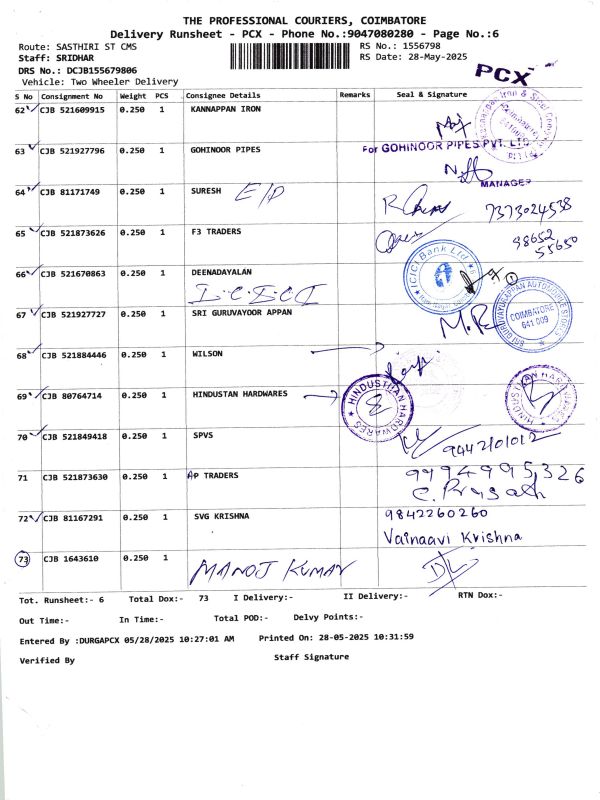 THE PROFESSIONAL COURIERS, COIMBATORE
Delivery Runsheet - PCX - Phone No.:9047080280 - Page No.:6
Route: SASTHIRI ST CMS
RS No.: 1556798
Staff: SRIDHAR
RS Date: 28-May-2025
DRS No.: DCJB155679806
Vehicle: Two Wheeler Delivery
PCX
S No Consignment No Weight PCS Consignee Details Remarks Seal & Signature
62 CJB 521609915 0.250 1 KANNAPPAN IRON
63 CJB 521927796 0.250 1 GOHINOOR PIPES For GOHINOOR PIPES PVT. LTD
MANAGER
64 CJB 81171749 0.250 1 SURESH E/P
7373024538
65 CJB 521873626 0.250 1 F3 TRADERS
98652
55650
66 CJB 521670863 0.250 1 DEENADAYALAN
I.C.I.C.I
ICICI Bank Ltd
67 CJB 521927727 0.250 1 SRI GURUVAYOOR APPAN
SRI GURUVAYURAPPAN AUTOMOBILE STORES
COIMBATORE
641 009
68 CJB 521884446 0.250 1 WILSON
69 CJB 80764714 0.250 1 HINDUSTAN HARDWARES
HINDUSTHAN HARDWARES
70 CJB 521849418 0.250 1 SPVS
9442101012
71 CJB 521873630 0.250 1 AP TRADERS
9994995326
C. Prasath
72 CJB 81167291 0.250 1 SVG KRISHNA
9842260260
Vainaavi Krishna
73 CJB 1643610 0.250 1
MANOJ KUMAR
Tot. Runsheet:- 6 Total Dox:- 73 I Delivery:- II Delivery:- RTN Dox:-
Out Time:- In Time:- Total POD:- Delvy Points:-
Entered By :DURGAPCX 05/28/2025 10:27:01 AM Printed On: 28-05-2025 10:31:59
Verified By Staff Signature